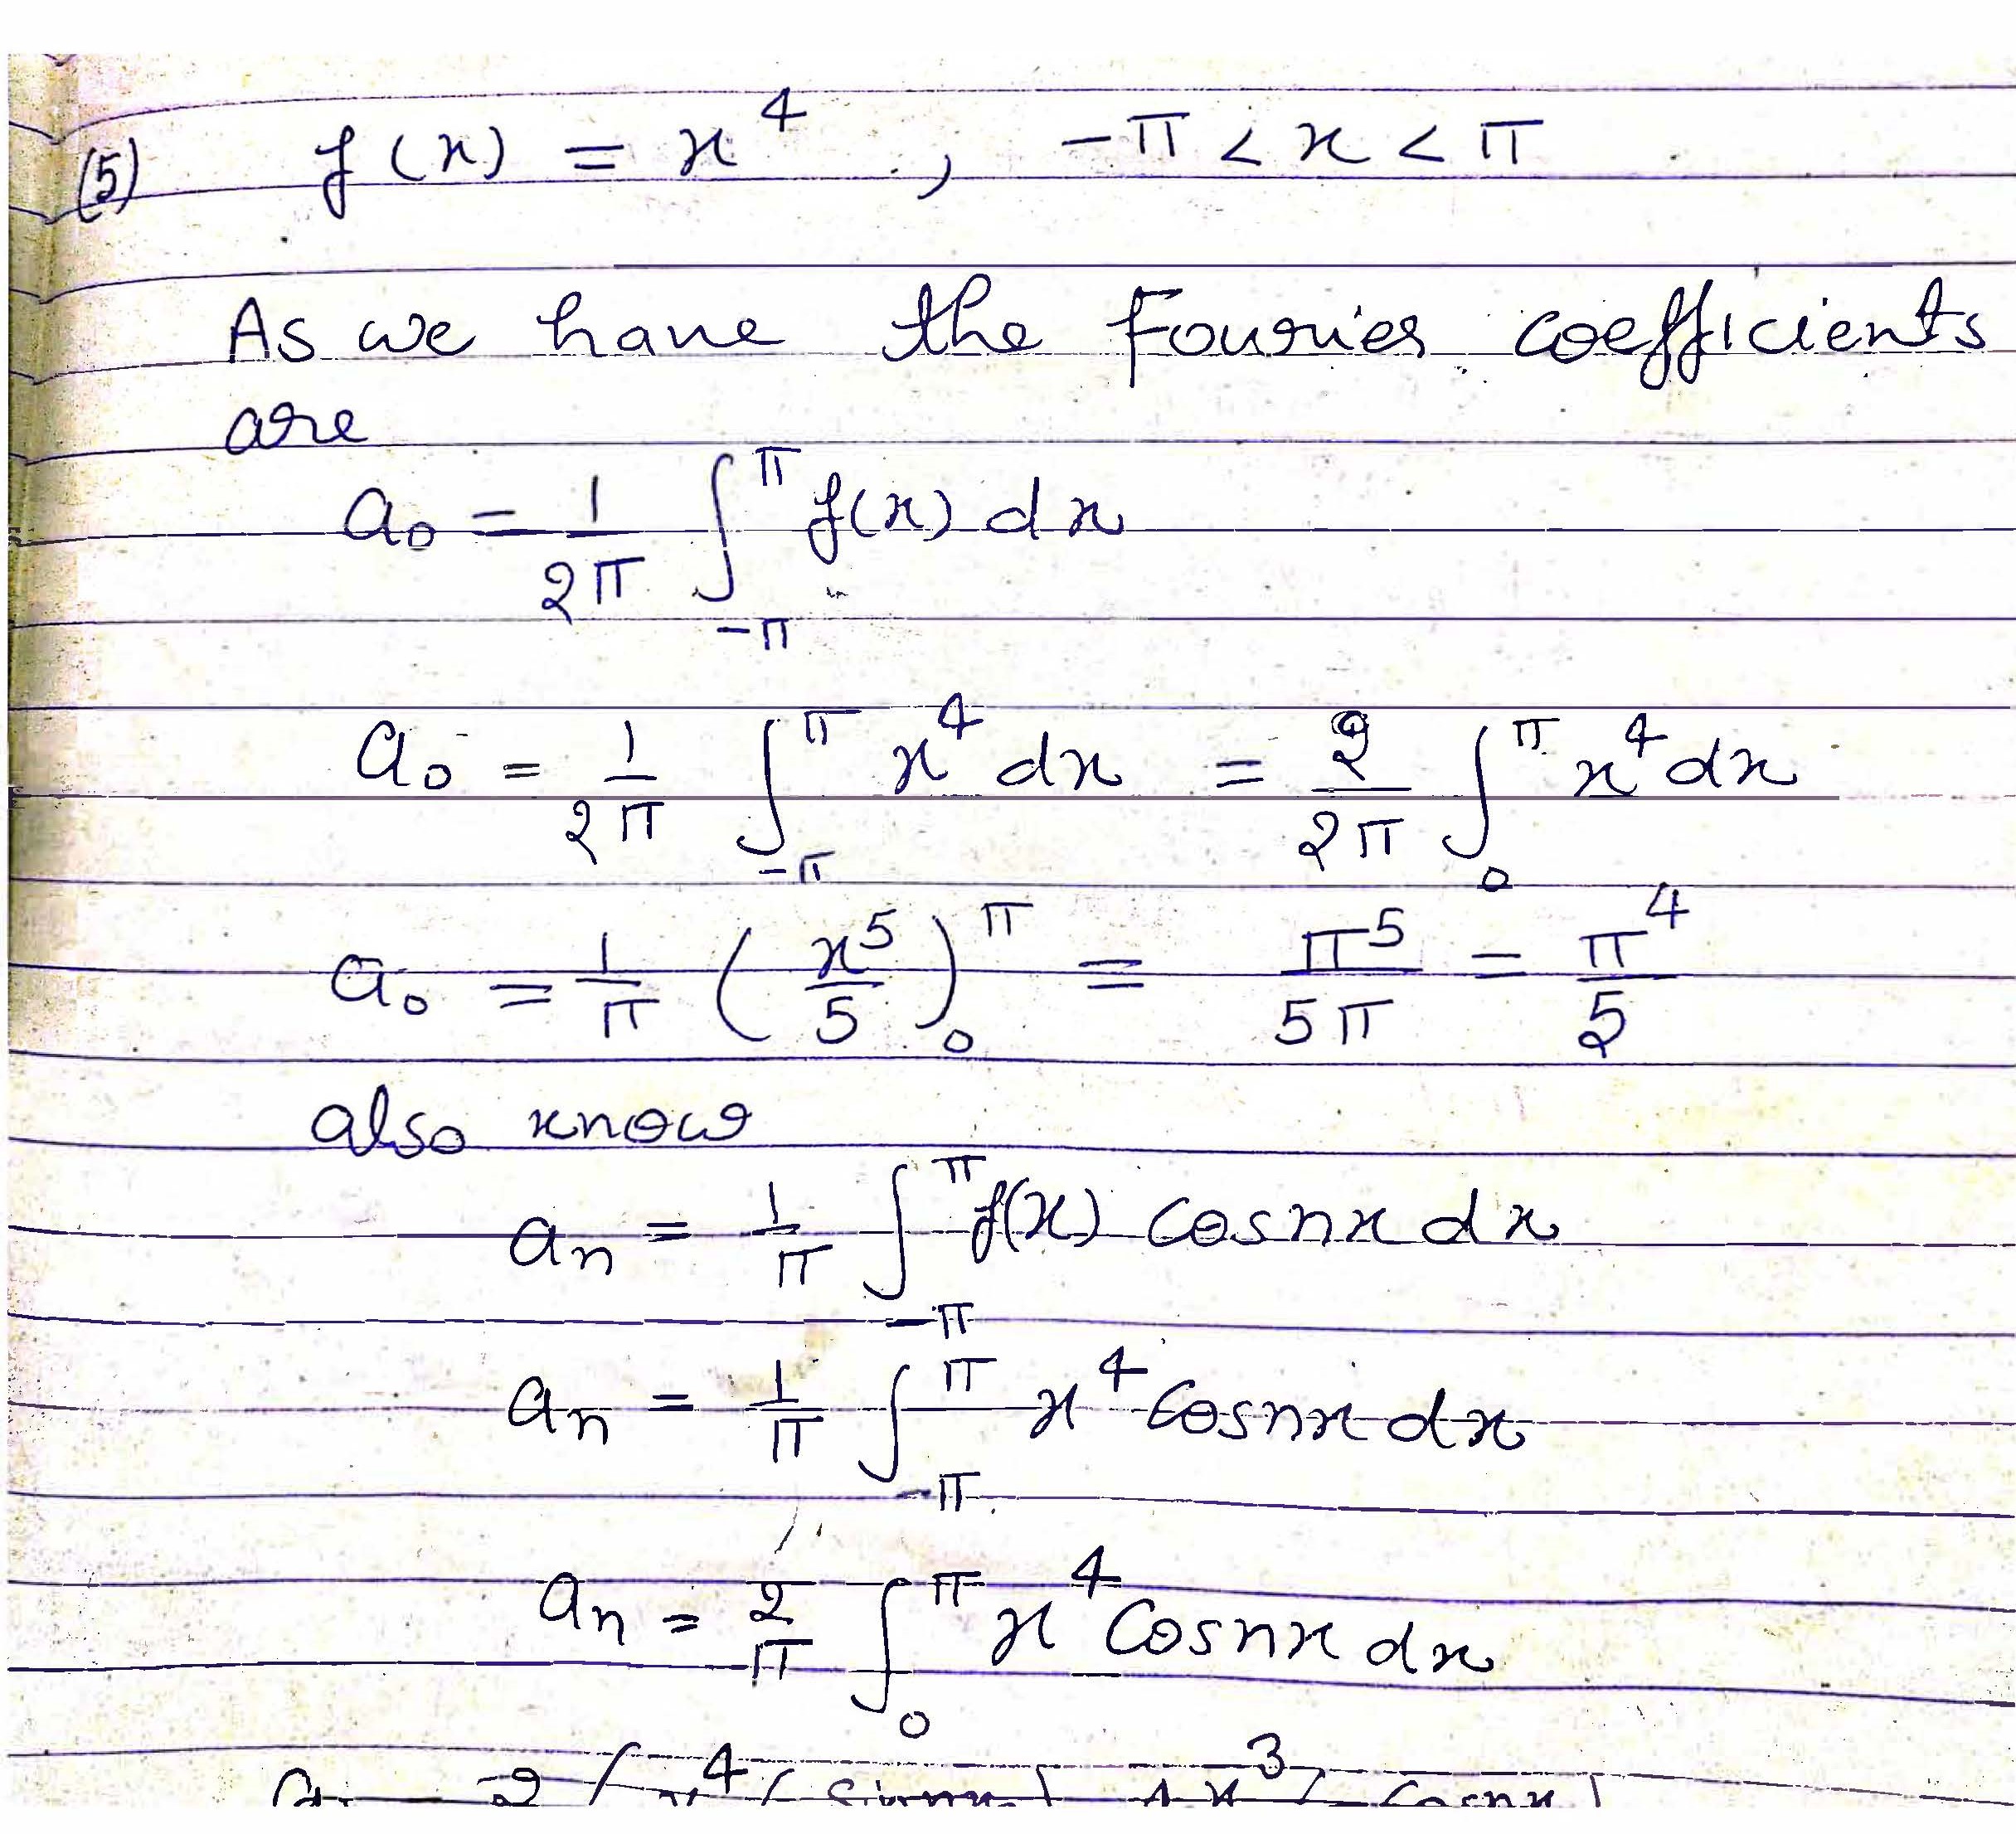 (5) f(x) = x⁴ , -π < x < π
As we have the Fourier coefficients
are
a₀ = 1/2π ∫_{-π}^{π} f(x) dx
a₀ = 1/2π ∫_{-π}^{π} x⁴ dx = 2/2π ∫_{0}^{π} x⁴ dx
a₀ = 1/π (x⁵/5)_{0}^{π} = π⁵/5π = π⁴/5
also know
aₙ = 1/π ∫_{-π}^{π} f(x) cosnx dx
aₙ = 1/π ∫_{-π}^{π} x⁴ cosnx dx
aₙ = 2/π ∫_{0}^{π} x⁴ cosnx dx